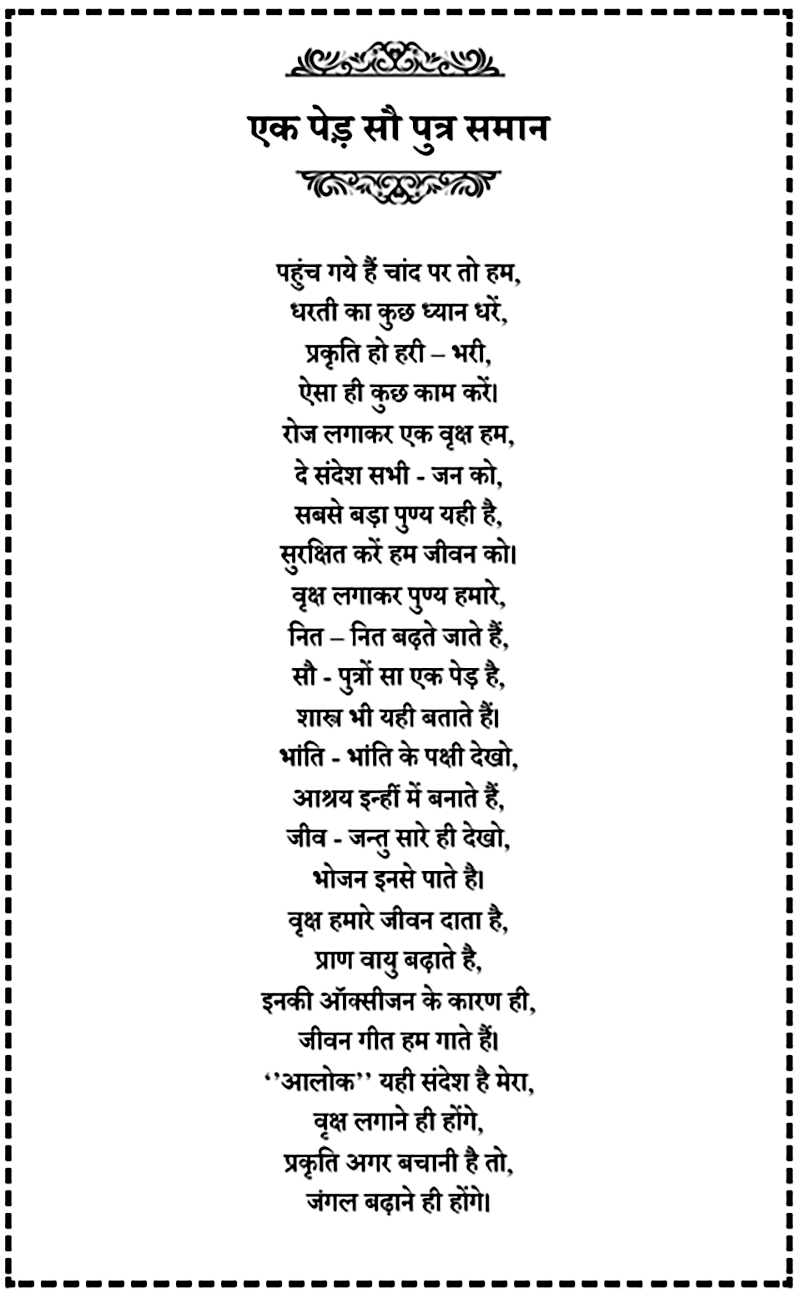 एक पेड़ सौ पुत्र समान
पहुंच गये हैं चांद पर तो हम,
धरती का कुछ ध्यान धरें,
प्रकृति हो हरी – भरी,
ऐसा ही कुछ काम करें।
रोज लगाकर एक वृक्ष हम,
दे संदेश सभी - जन को,
सबसे बड़ा पुण्य यही है,
सुरक्षित करें हम जीवन को।
वृक्ष लगाकर पुण्य हमारे,
नित – नित बढ़ते जाते हैं,
सौ - पुत्रों सा एक पेड़ है,
शास्त्र भी यही बताते हैं।
भांति - भांति के पक्षी देखो,
आश्रय इन्हीं में बनाते हैं,
जीव - जन्तु सारे ही देखो,
भोजन इनसे पाते है।
वृक्ष हमारे जीवन दाता है,
प्राण वायु बढ़ाते है,
इनकी ऑक्सीजन के कारण ही,
जीवन गीत हम गाते हैं।
‘’आलोक’’ यही संदेश है मेरा,
वृक्ष लगाने ही होंगे,
प्रकृति अगर बचानी है तो,
जंगल बढ़ाने ही होंगे।